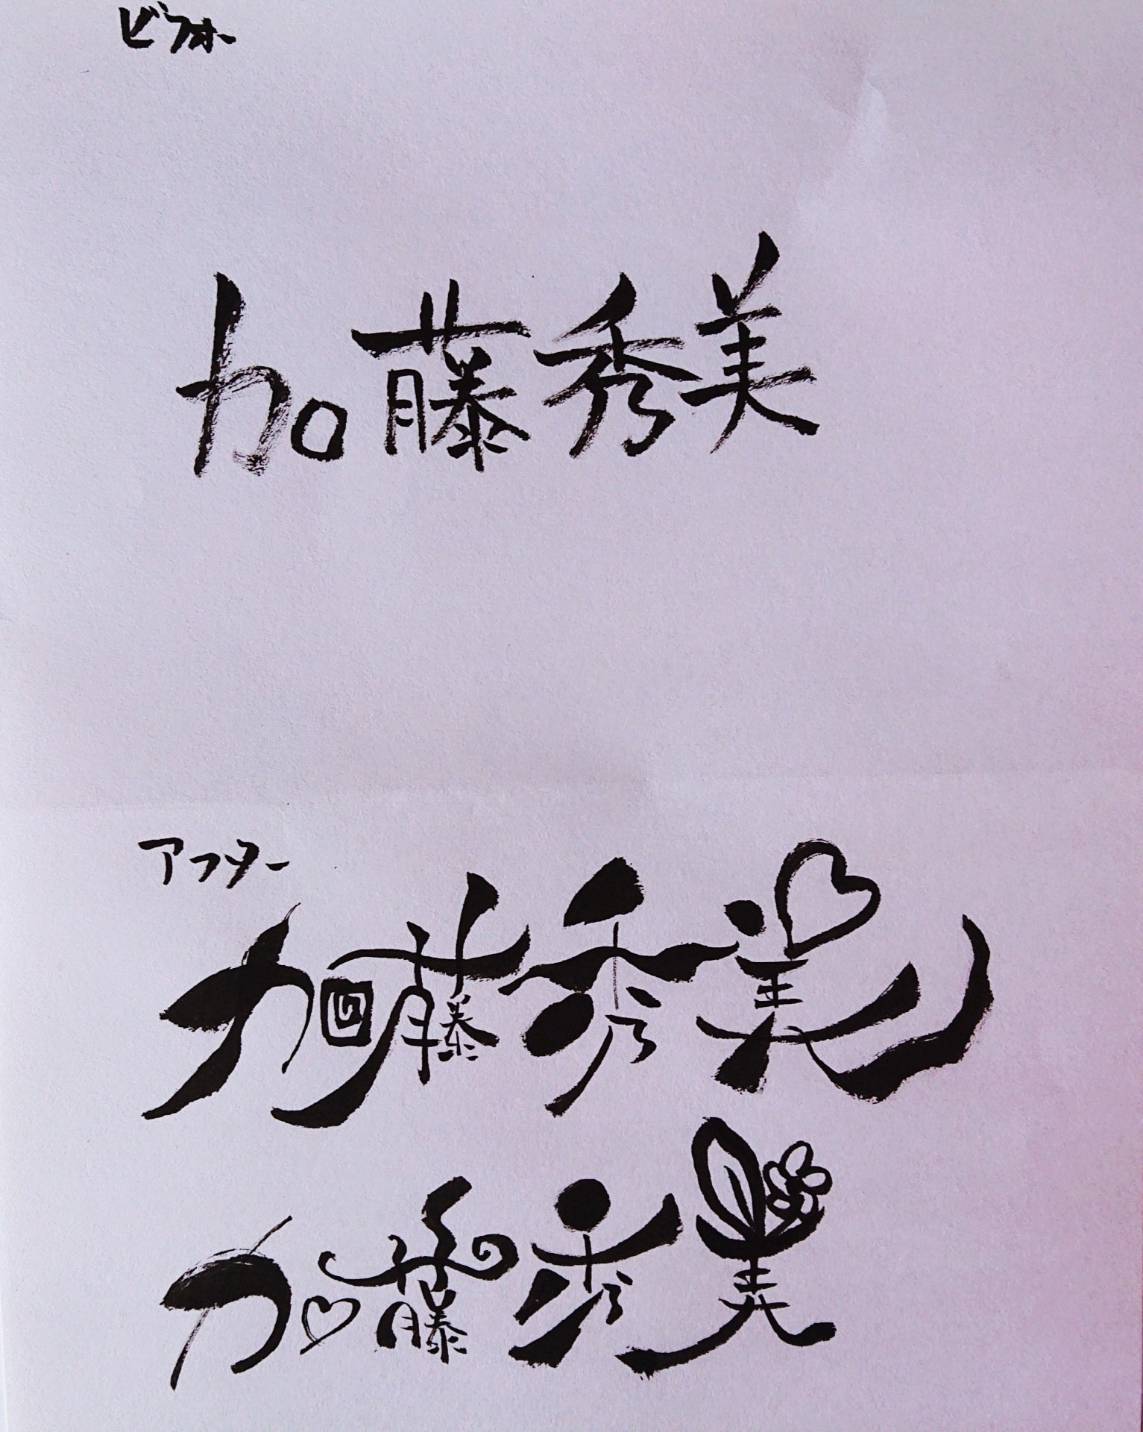 ビフォー
加藤秀美
アフター
加藤秀美
加藤秀美